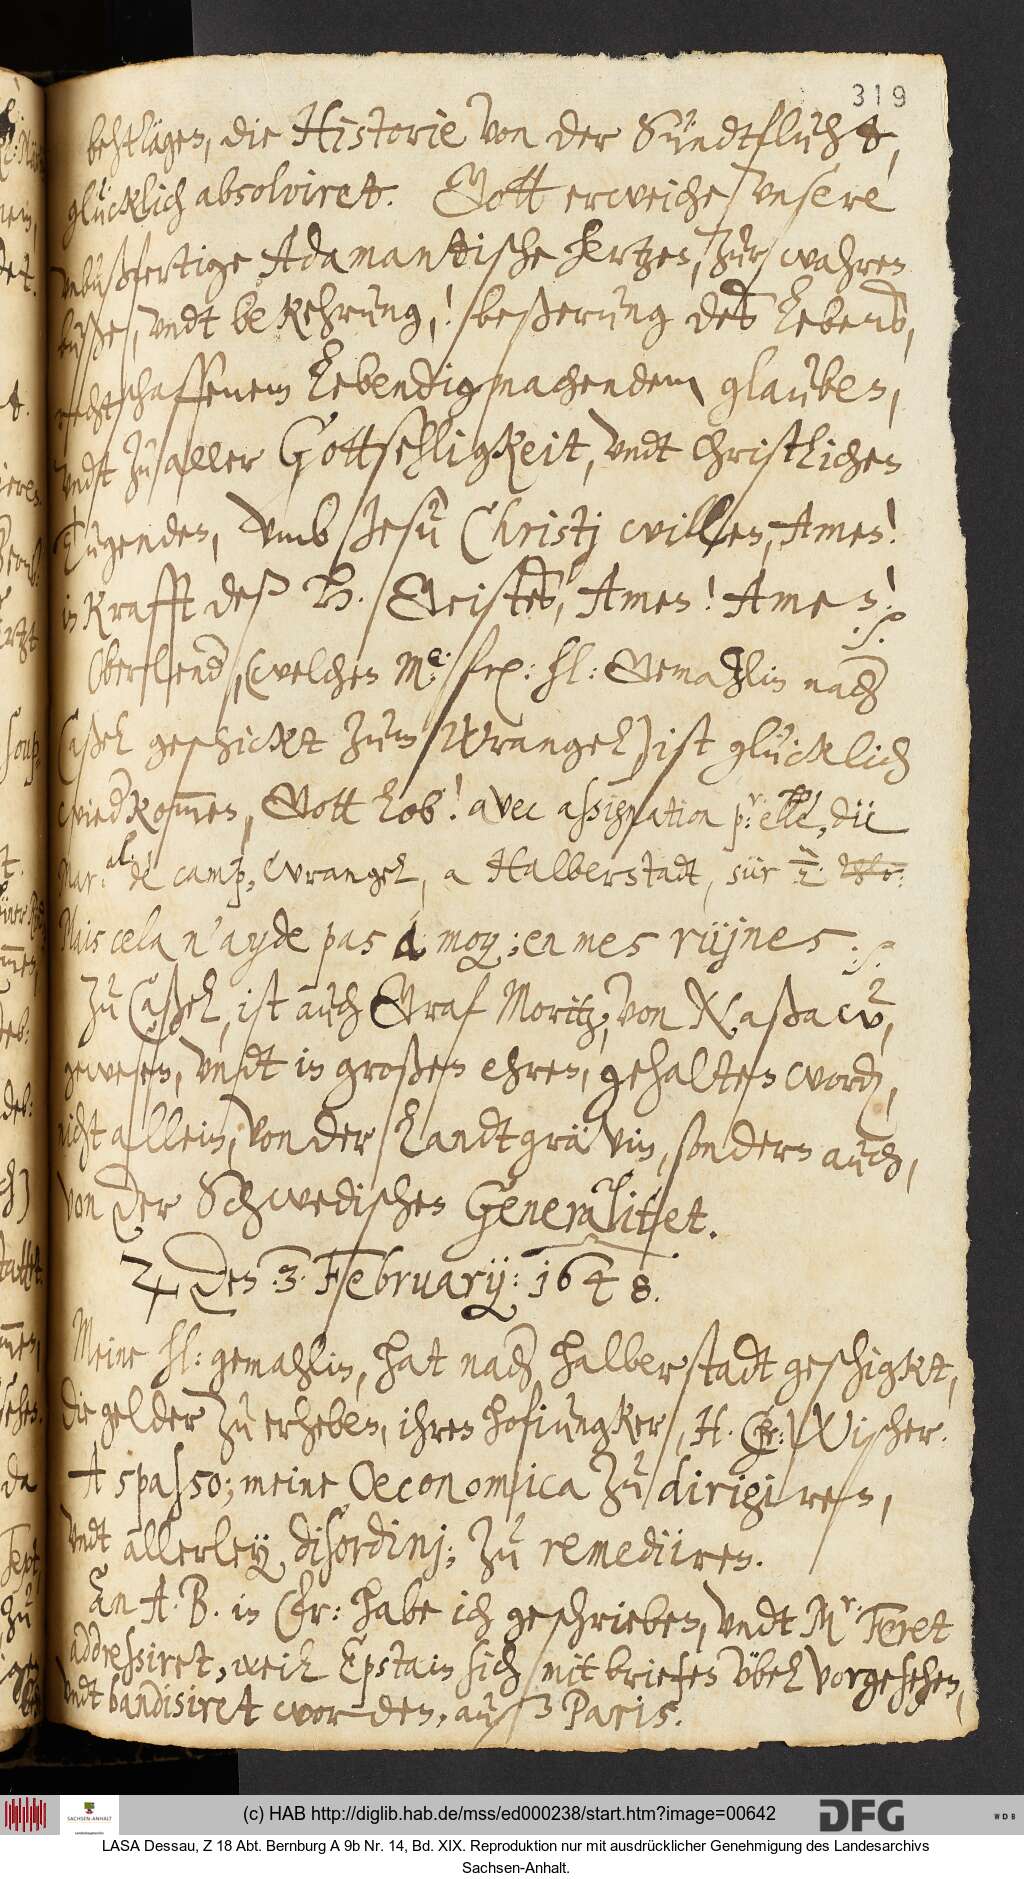 319
behtlägen, die Historie von der Sündtfluht,
glücklich absolviret. Gott erweiche vnsere
vnbußfertige Adamantische hertzen, zur wahren
buße, vndt bekehrung,! beßerung deß lebens,
rechtschaffenem lebendigmachendem glauben,
vndt zu aller Gottsehligkeit, vndt christlichen
Tugenden, vmb Jesu Christj willen, Amen!
in Krafft deß H. Geistes, Amen! Amen! ./.
Oberlender, (welchen Me: fre: hl: Gemahlin nach
Caßel geschickt zum Wrangel) ist glücklich
wiederkommen, Gott lob! avec assignation pr: elle, du
Mar:al de camp, Wrangel, a Halberstadt, sur
Mais cela n'ayde pas a moy; en mes ruynes ./.
Zu Caßel, ist auch Graf Moritz, von Naßaw,
gewesen, vndt in großen ehren, gehalten worden,
nicht allein, von der Landtgrävin, sondern auch,
von der Schwedischen Generalitet.
♃ den .3. February: 1648.
Meine hl: gemahlin, hat nach halberstadt geschigkt,
die gelder zu erheben, ihren hofiungker, H. Chr: Wischer.
A spasso; meine Oeconomica zu dirigiren,
vndt allerley disordinj; zu remediiren.
An A. B. in Chr: habe ich geschrieben, vndt Mr. Feret
addressiret, weil Epstain sich mit briefen übel vorgesehen,
vndt bandisiret worden, auß Paris.
(c) HAB http://diglib.hab.de/mss/ed000238/start.htm?image=00642
SACHSEN-ANHALT
DFG
WDB
LASA Dessau, Z 18 Abt. Bernburg A 9b Nr. 14, Bd. XIX. Reproduktion nur mit ausdrücklicher Genehmigung des Landesarchivs
Sachsen-Anhalt.